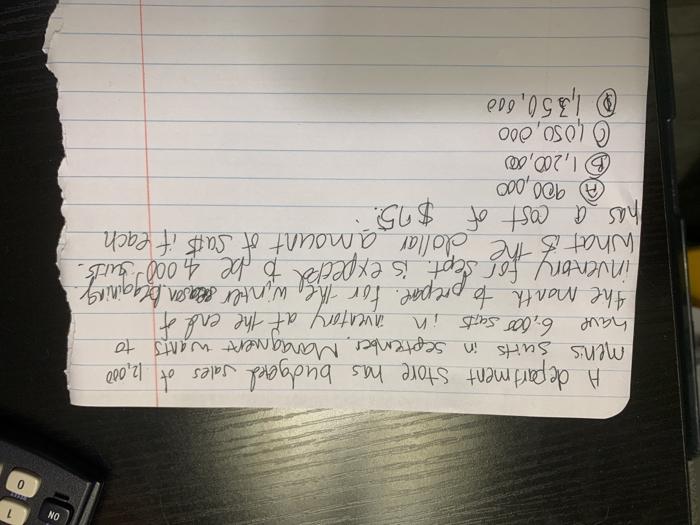 A department store has budgeted sales of 12,000
men's suits in september. Managment wants to
have 6,000 suits in inventory at the end of
the month to prepare for the winter season. beggining
inventory for sept. is expected to be 4,000 suits.
What is the dollar amount of suits if each
has a cost of $75?
A 900,000
B 1,200,000
C 1,050,000
D 1,350,000
ON
1
0